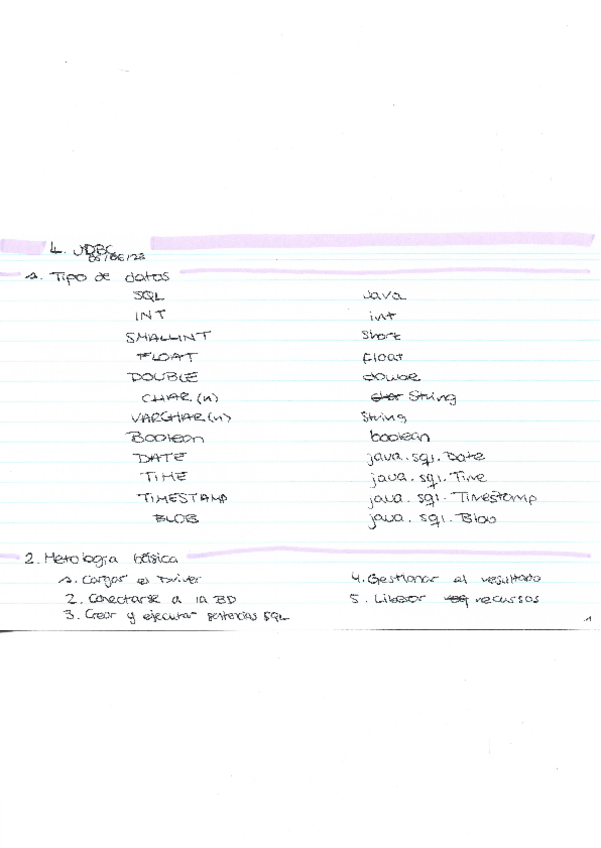 4. JDBC
05/06/23
1. Tipo de datos
SQL Java
INT int
SMALLINT Short
FLOAT float
DOUBLE double
CHAR (n) char String
VARCHAR (n) String
Boolean boolean
DATE java.sql.Date
TIME java.sql.Time
TIMESTAMP java.sql.Timestamp
BLOB java.sql.Blob
2. Metología básica
1. Cargar el Driver 4. Gestionar el resultado
2. Conectarse a la BD 5. Liberar recursos
3. Crear y ejecutar sentencias SQL
1